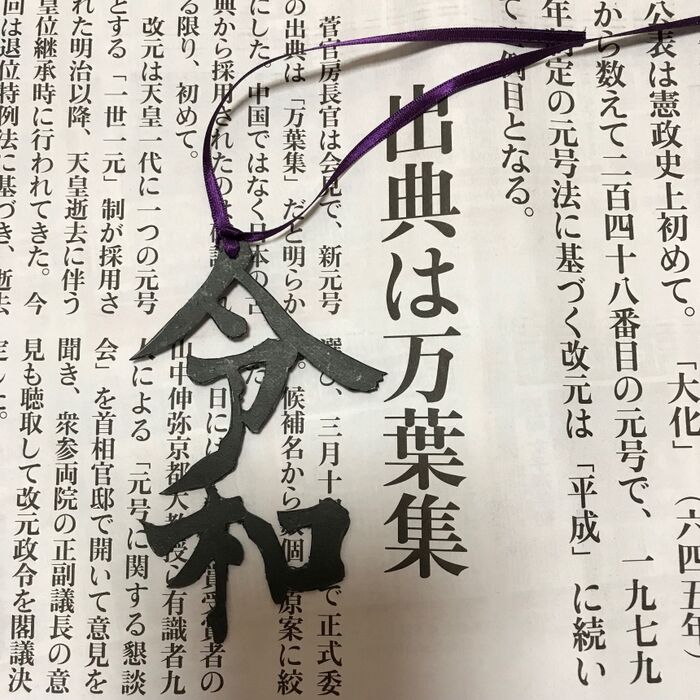 公表は憲政史上初めて。「大化」（六四五年）
から数えて二百四十八番目の元号で、一九七九
年制定の元号法に基づく改元は「平成」に続い
て 例目となる。
出典は万葉集
菅官房長官は会見で、新元号
の出典は「万葉集」だと明らか
にした。中国ではなく日本の古
典から採用されたのは
る限り、初めて。
改元は天皇一代に一つの元号
とする「一世一元」制が採用さ
れた明治以降、天皇逝去に伴う
皇位継承時に行われてきた。今
回は退位特例法に基づき、逝去
、三月十 で正式委
。候補名から数個 原案に絞
日には 賞受賞者の
山中伸弥京都大教授ら有識者九
人による「元号に関する懇談
会」を首相官邸で開いて意見を
聞き、衆参両院の正副議長の意
見も聴取して改元政令を閣議決
定した。
令和